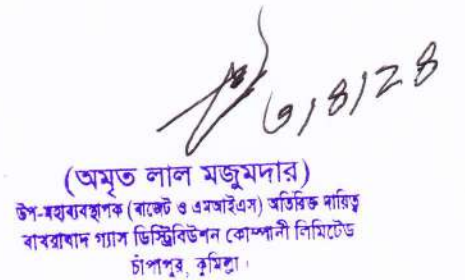 ৩/৪/২৪
(অমৃত লাল মজুমদার)
উপ-মহাব্যবস্থাপক (বাজেট ও এমআইএস) অতিরিক্ত দায়িত্ব
বাখরাবাদ গ্যাস ডিস্ট্রিবিউশন কোম্পানী লিমিটেড
চাঁপাপুর, কুমিল্লা।